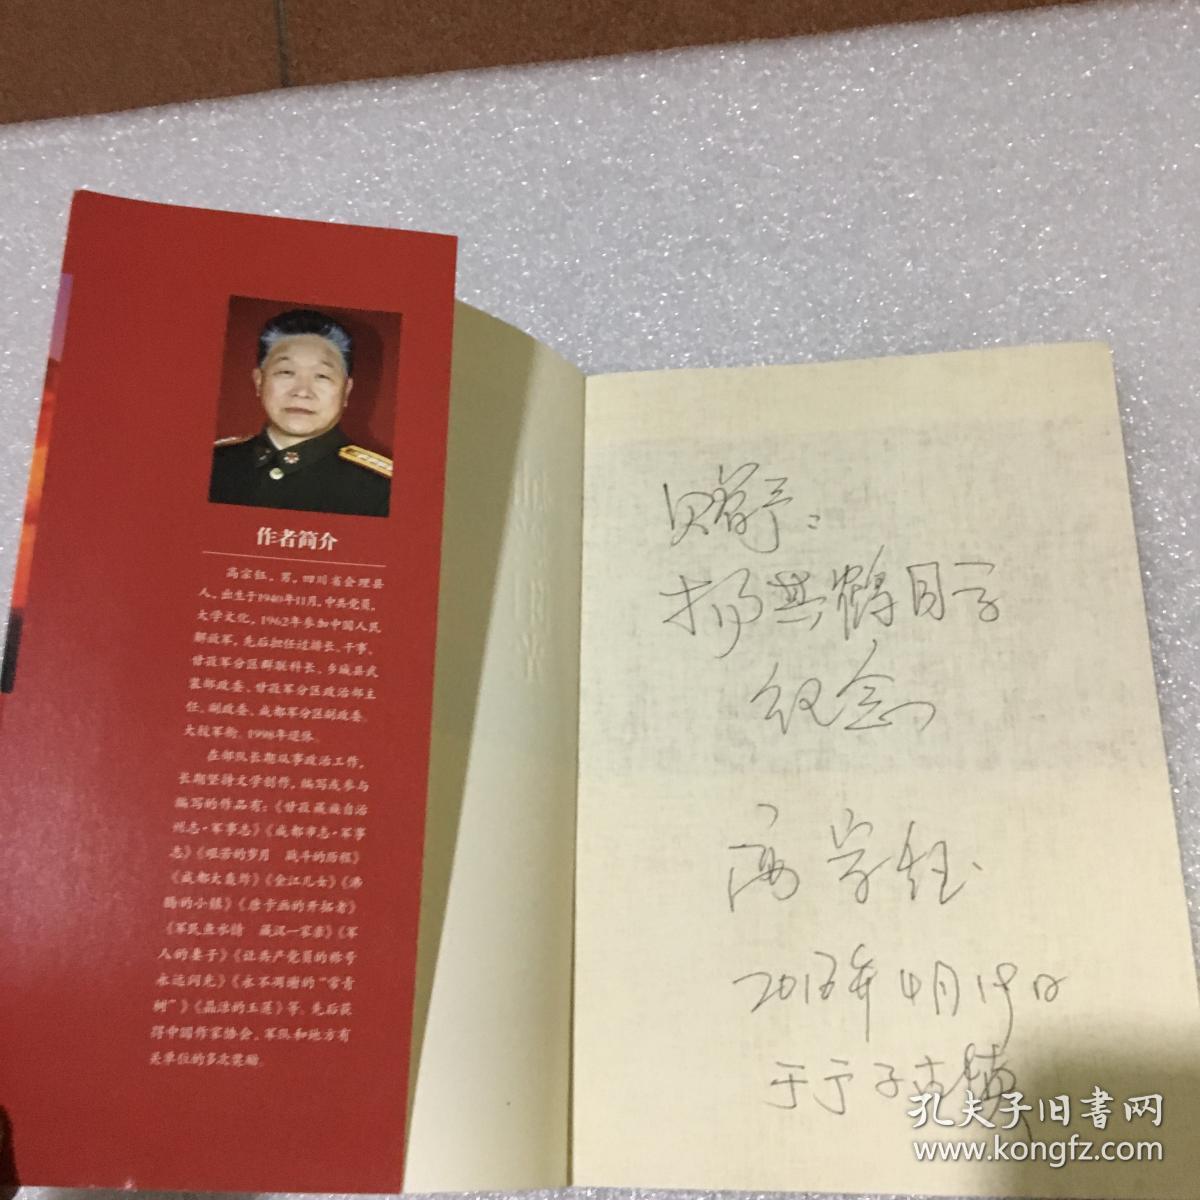 作者简介
高宗钰，男，四川省会理县
人，出生于1940年11月，中共党员，
大学文化，1962年参加中国人民
解放军，先后担任过排长、干事、
甘孜军分区群联科长、乡城县武
装部政委、甘孜军分区政治部主
任、副政委、成都军分区副政委。
大校军衔。1998年退休。
在部队长期从事政治工作，
长期坚持文学创作，编写或参与
编写的作品有：《甘孜藏族自治
州志·军事志》《成都市志·军事
志》《艰苦的岁月 战斗的历程》
《成都大轰炸》《金江儿女》《沸
腾的小镇》《唐卡画的开拓者》
《军民鱼水情 藏汉一家亲》《军
人的妻子》《让共产党员的称号
永远闪光》《永不凋谢的“常青
树”》《晶洁的玉莲》等。先后获
得中国作家协会、军队和地方有
关单位的多次奖励。
赠予：
杨共鹤同学
纪念
高宗钰
年4月19日
孔夫子旧书网
www.kongfz.com